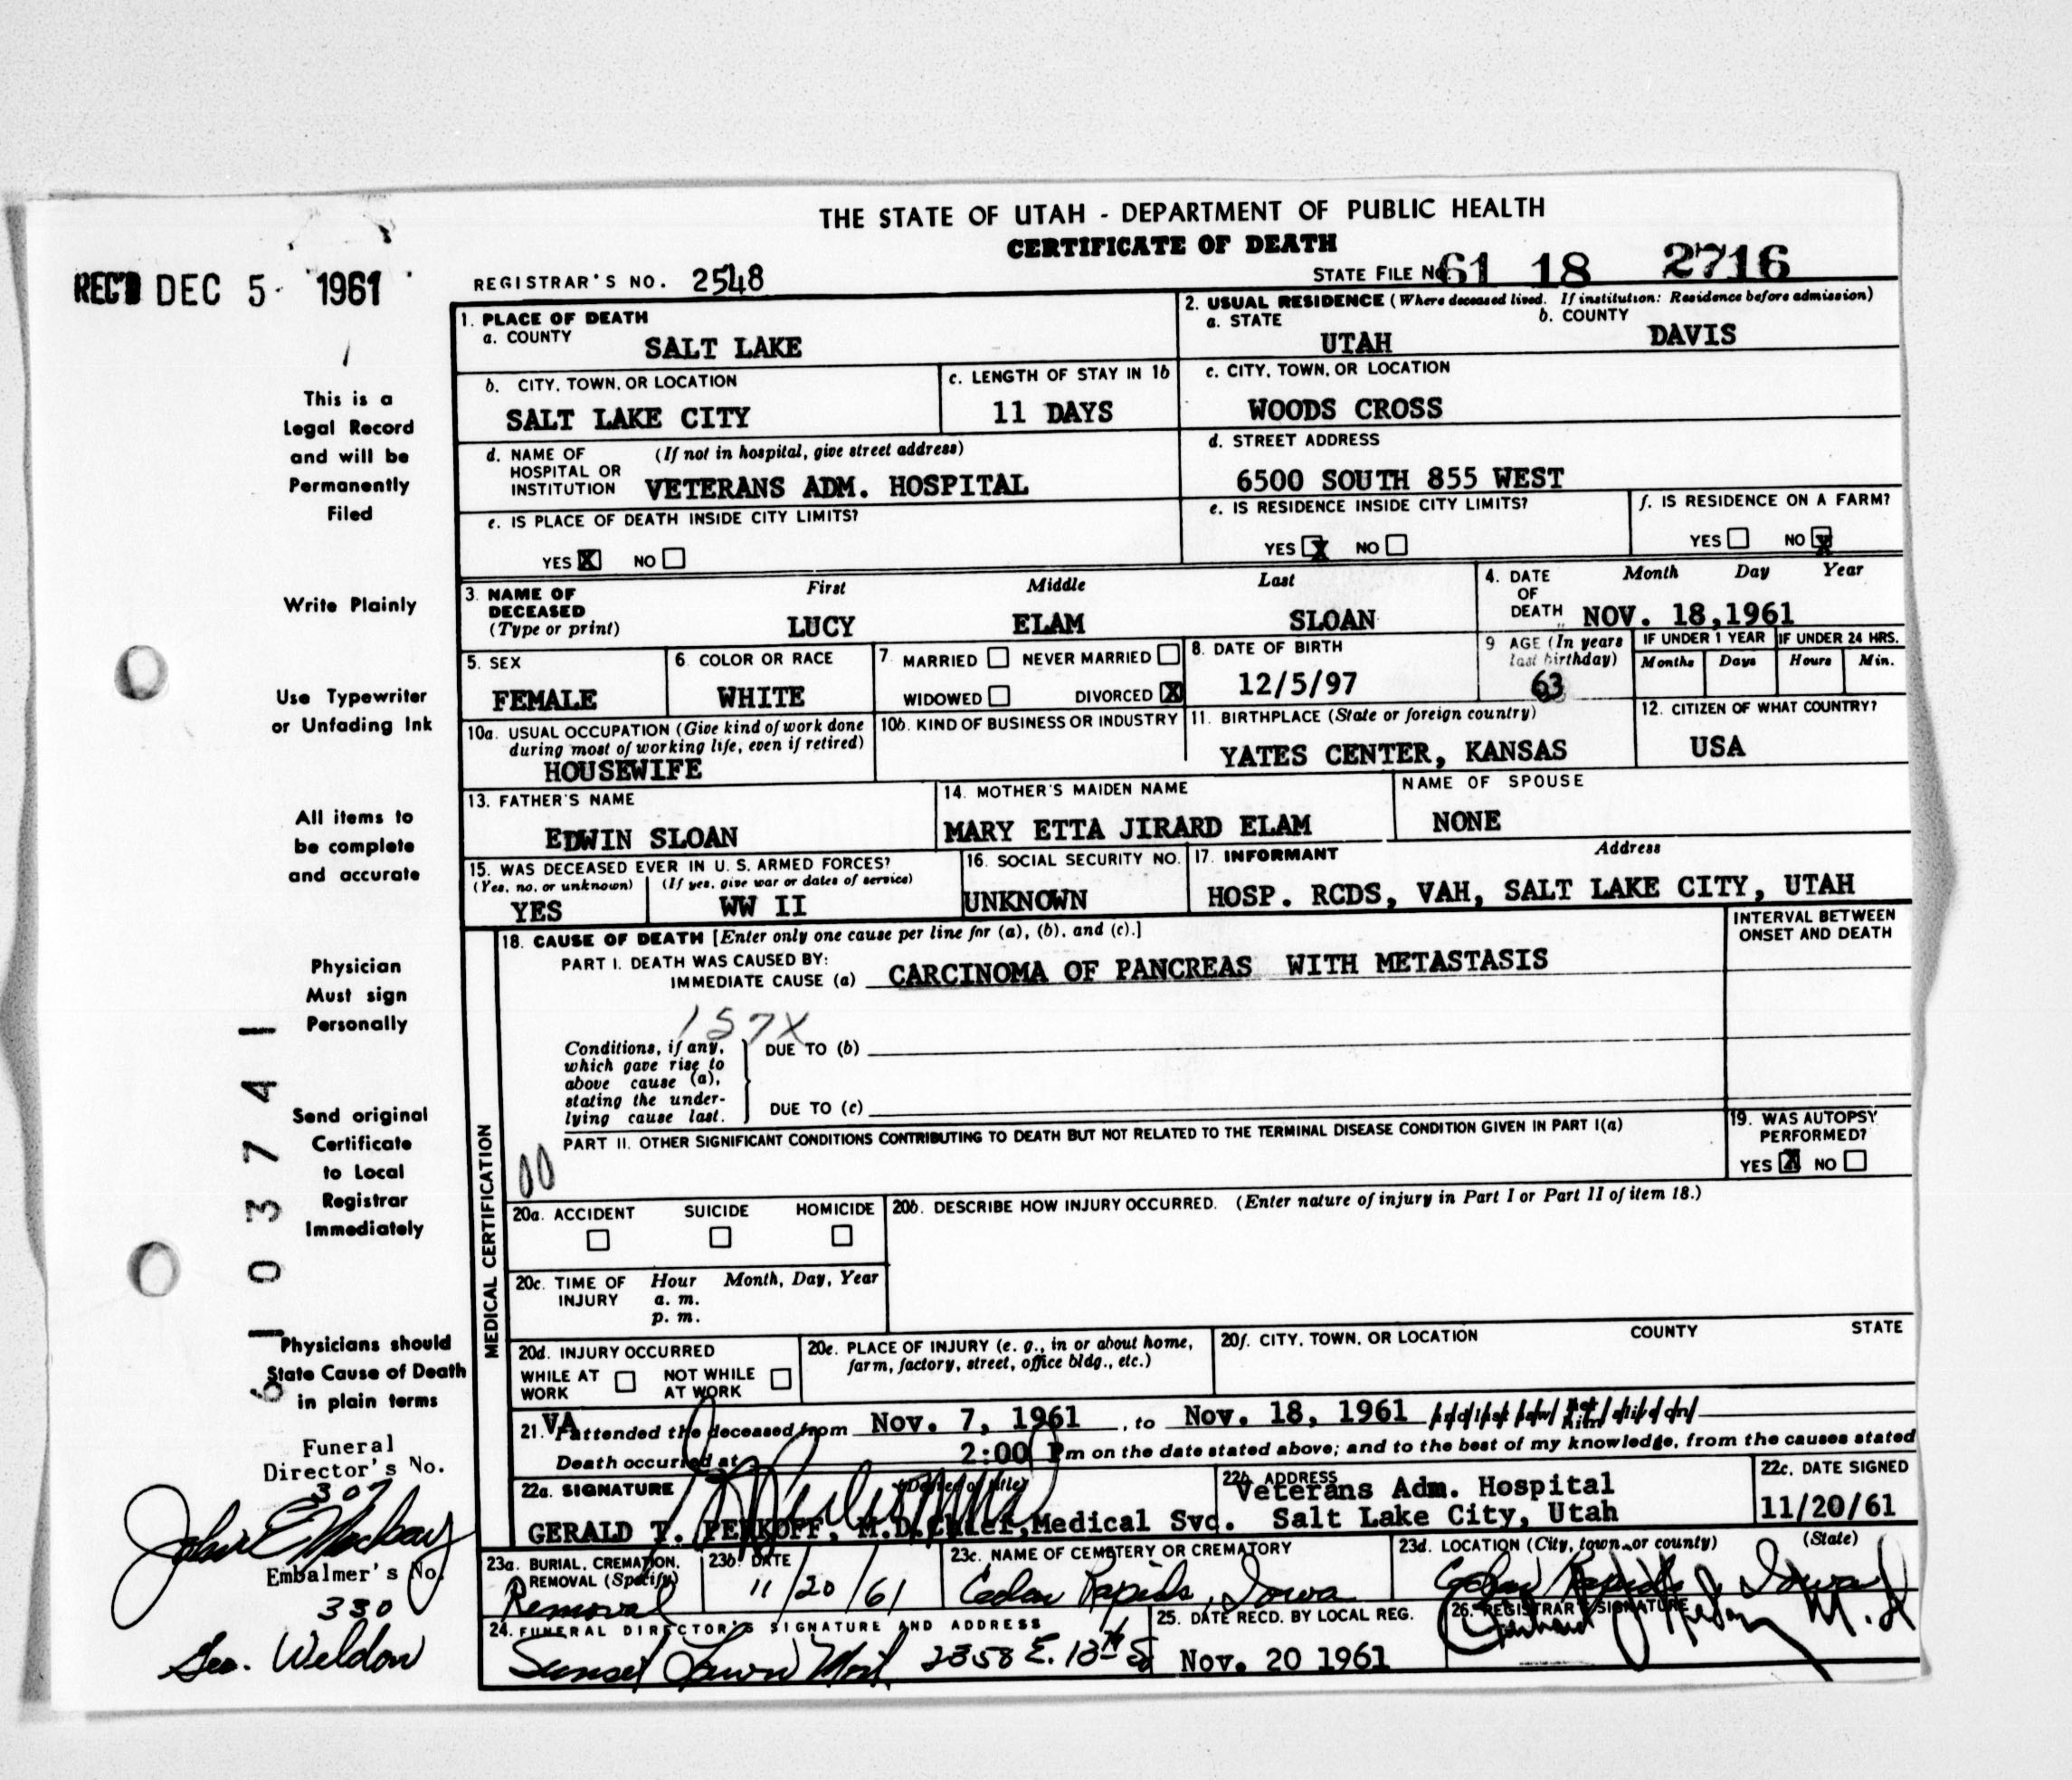 THE STATE OF UTAH - DEPARTMENT OF PUBLIC HEALTH
CERTIFICATE OF DEATH
REC'D DEC 5 1961
REGISTRAR'S NO. 2548
STATE FILE NO. 61 18 2716
1. PLACE OF DEATH
a. COUNTY SALT LAKE
2. USUAL RESIDENCE (Where deceased lived. If institution: Residence before admission)
a. STATE UTAH b. COUNTY DAVIS
b. CITY, TOWN, OR LOCATION SALT LAKE CITY
c. LENGTH OF STAY IN 1b 11 DAYS
c. CITY, TOWN, OR LOCATION WOODS CROSS
d. NAME OF HOSPITAL OR INSTITUTION (If not in hospital, give street address) VETERANS ADM. HOSPITAL
d. STREET ADDRESS 6500 SOUTH 855 WEST
e. IS PLACE OF DEATH INSIDE CITY LIMITS?
YES X NO
e. IS RESIDENCE INSIDE CITY LIMITS?
YES X NO
f. IS RESIDENCE ON A FARM?
YES NO X
3. NAME OF DECEASED (Type or print)
First Middle Last
LUCY ELAM SLOAN
4. DATE OF DEATH Month Day Year
NOV. 18,1961
5. SEX FEMALE
6. COLOR OR RACE WHITE
7. MARRIED NEVER MARRIED
WIDOWED DIVORCED X
8. DATE OF BIRTH 12/5/97
9 AGE (In years last birthday) 63
IF UNDER 1 YEAR Months Days
IF UNDER 24 HRS. Hours Min.
10a. USUAL OCCUPATION (Give kind of work done during most of working life, even if retired)
HOUSEWIFE
10b. KIND OF BUSINESS OR INDUSTRY
11. BIRTHPLACE (State or foreign country)
YATES CENTER, KANSAS
12. CITIZEN OF WHAT COUNTRY?
USA
13. FATHER'S NAME
EDWIN SLOAN
14. MOTHER'S MAIDEN NAME
MARY ETTA JIRARD ELAM
NAME OF SPOUSE
NONE
15. WAS DECEASED EVER IN U. S. ARMED FORCES?
(Yes, no, or unknown) (If yes, give war or dates of service)
YES WW II
16. SOCIAL SECURITY NO.
UNKNOWN
17. INFORMANT Address
HOSP. RCDS, VAH, SALT LAKE CITY, UTAH
MEDICAL CERTIFICATION
18. CAUSE OF DEATH [Enter only one cause per line for (a), (b), and (c).]
INTERVAL BETWEEN ONSET AND DEATH
PART I. DEATH WAS CAUSED BY:
IMMEDIATE CAUSE (a) CARCINOMA OF PANCREAS WITH METASTASIS
157X
Conditions, if any, which gave rise to above cause (a), stating the underlying cause last.
DUE TO (b)
DUE TO (c)
PART II. OTHER SIGNIFICANT CONDITIONS CONTRIBUTING TO DEATH BUT NOT RELATED TO THE TERMINAL DISEASE CONDITION GIVEN IN PART I(a)
00
19. WAS AUTOPSY PERFORMED?
YES X NO
20a. ACCIDENT SUICIDE HOMICIDE
20b. DESCRIBE HOW INJURY OCCURRED. (Enter nature of injury in Part I or Part II of item 18.)
20c. TIME OF INJURY Hour Month, Day, Year
a. m.
p. m.
20d. INJURY OCCURRED
WHILE AT WORK NOT WHILE AT WORK
20e. PLACE OF INJURY (e. g., in or about home, farm, factory, street, office bldg., etc.)
20f. CITY, TOWN, OR LOCATION COUNTY STATE
21. VA attended the deceased from Nov. 7, 1961, to Nov. 18, 1961
Death occurred at 2:00 Pm on the date stated above; and to the best of my knowledge, from the causes stated
22a. SIGNATURE (Degree or title)
GERALD T. PERKOFF, M.D. Chief, Medical Svc.
22b. ADDRESS
Veterans Adm. Hospital
Salt Lake City, Utah
22c. DATE SIGNED
11/20/61
23a. BURIAL, CREMATION, REMOVAL (Specify)
Removal
23b. DATE
11/20/61
23c. NAME OF CEMETERY OR CREMATORY
Cedar Rapids, Iowa
23d. LOCATION (City, town, or county) (State)
Cedar Rapids, Iowa
24. FUNERAL DIRECTOR'S SIGNATURE AND ADDRESS
Sunset Lawn Mort. 2358 E. 13th S
25. DATE RECD. BY LOCAL REG.
Nov. 20 1961
26. REGISTRAR'S SIGNATURE
M.D
This is a
Legal Record
and will be
Permanently
Filed
Write Plainly
Use Typewriter
or Unfading Ink
All items to
be complete
and accurate
Physician
Must sign
Personally
Send original
Certificate
to Local
Registrar
Immediately
Physicians should
State Cause of Death
in plain terms
61 03741
Funeral
Director's No.
307
Embalmer's No.
330
Geo. Weldon